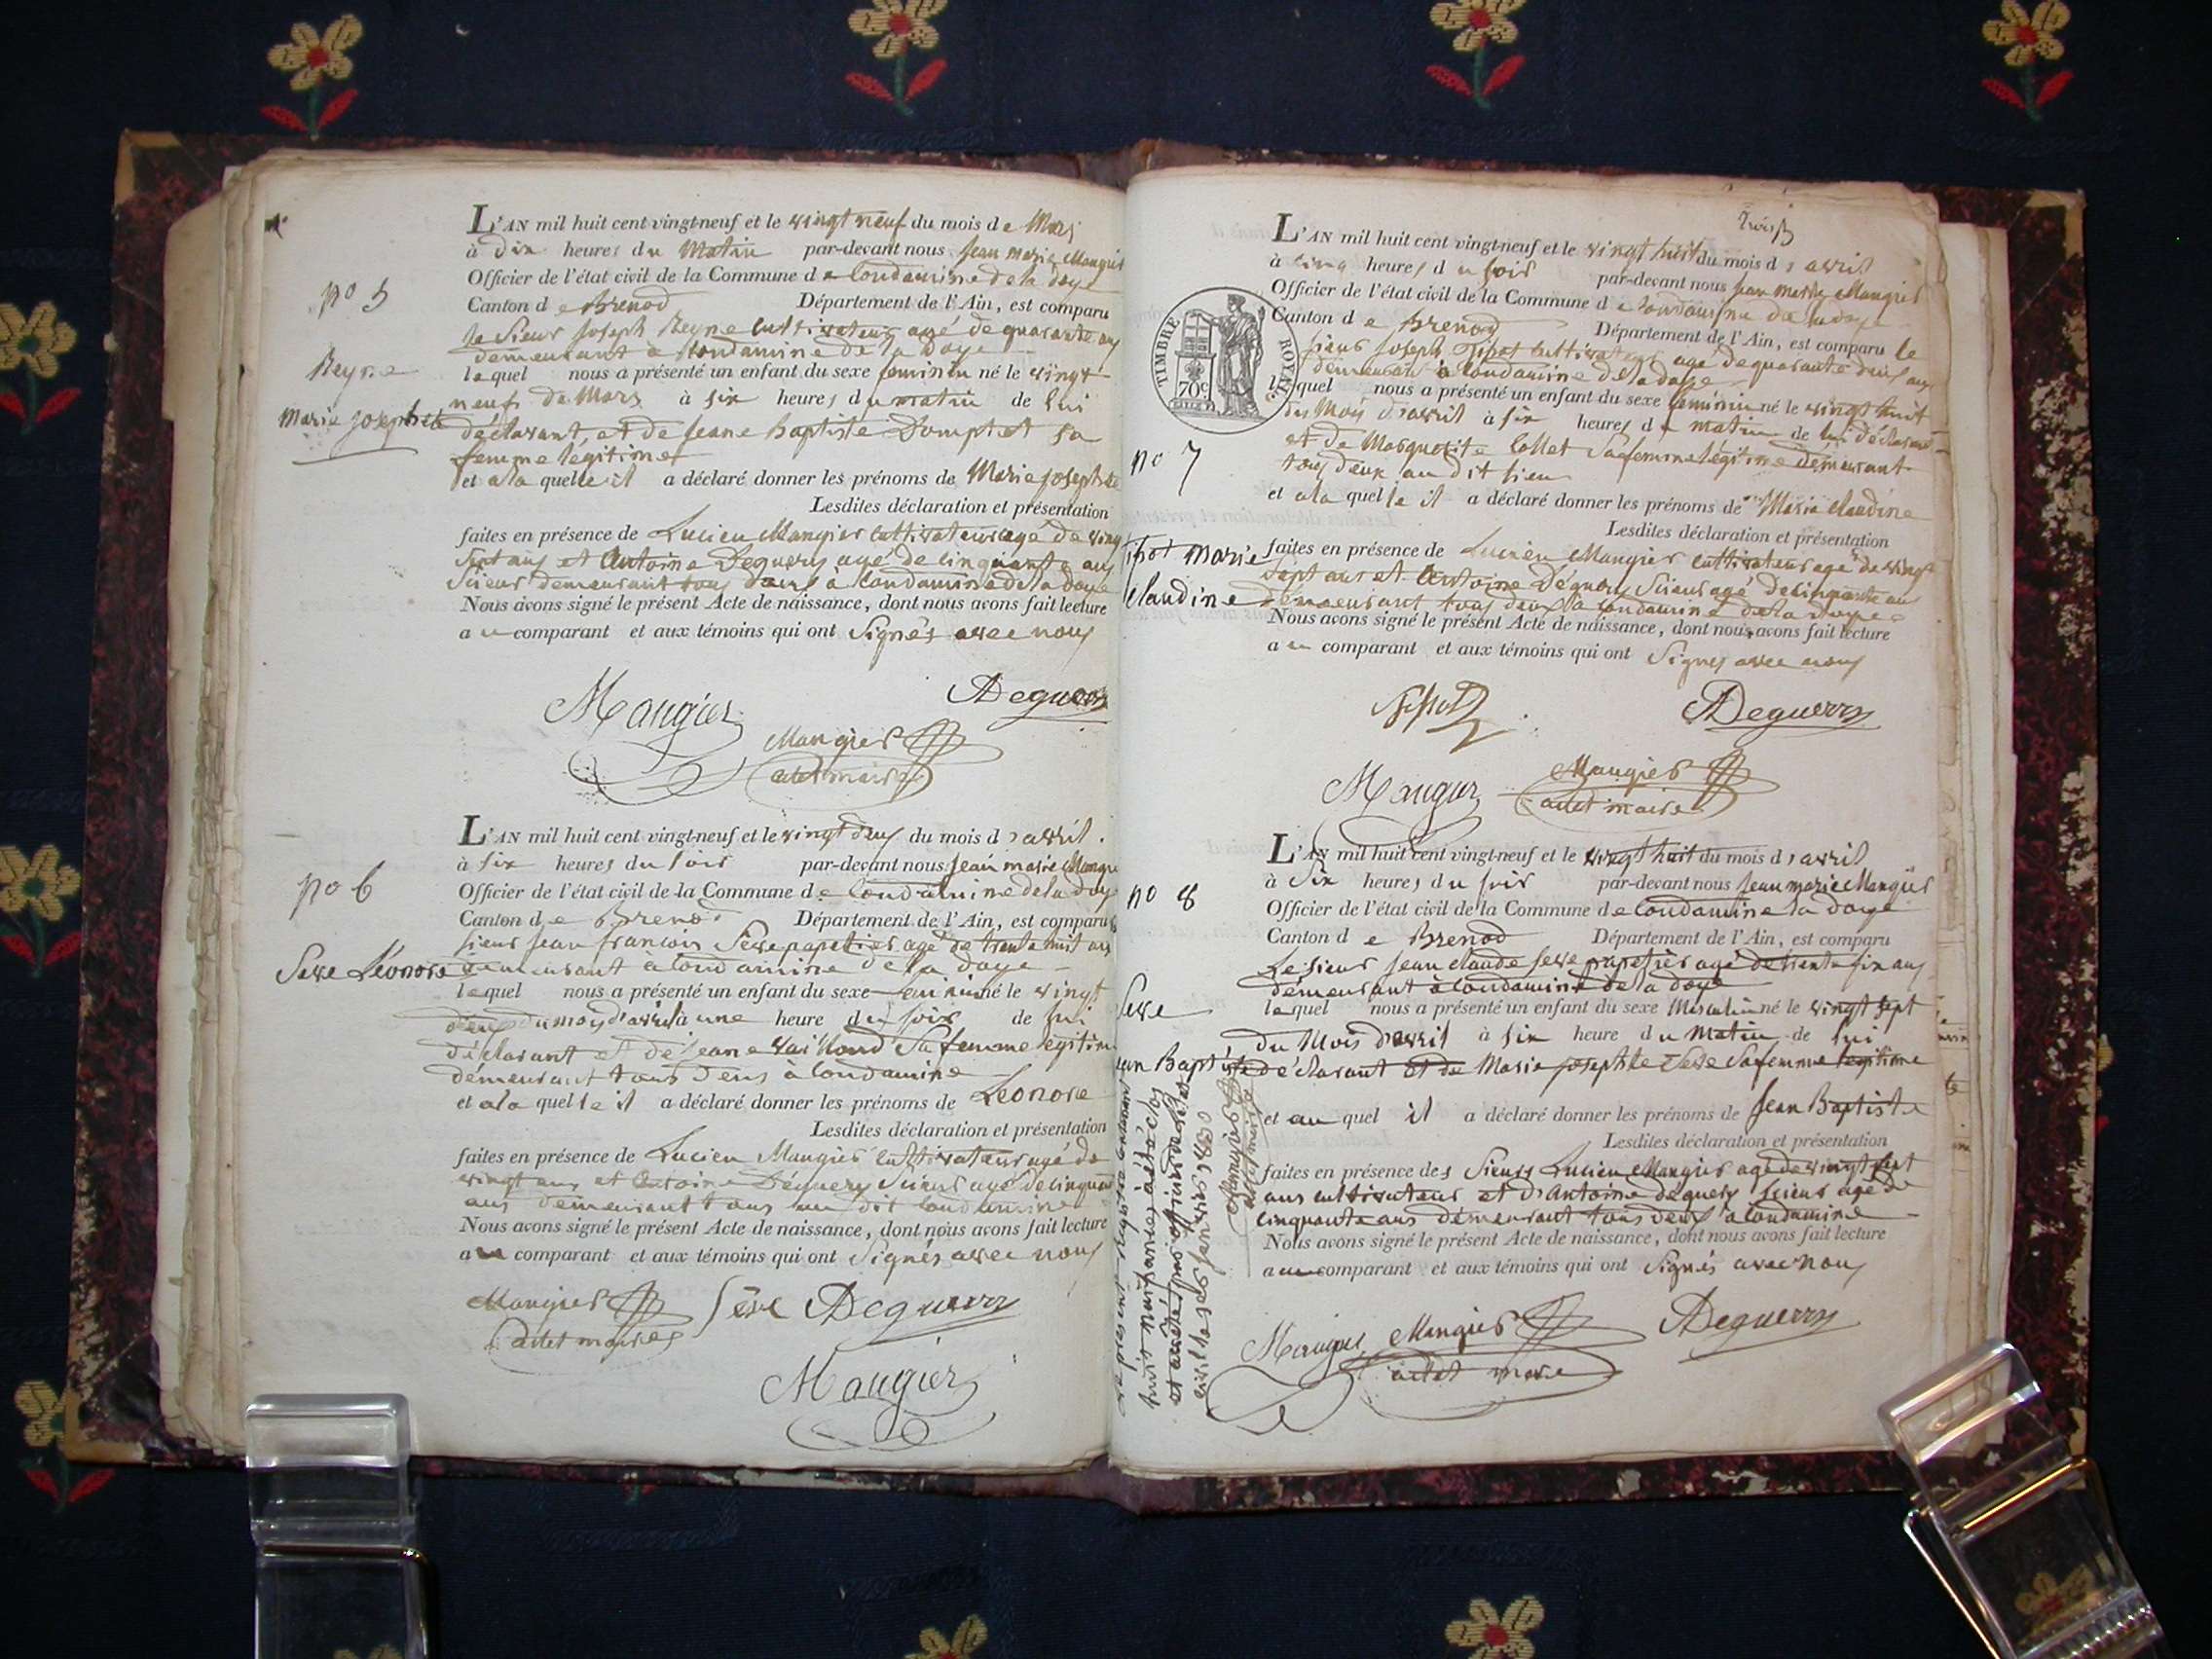 L'AN mil huit cent vingt-neuf et le vingt neuf du mois de Mars
à dix heures du Matin par-devant nous Jean marie Mangier
Officier de l'état civil de la Commune de Condamine de la doye
no 5
Canton de Brenod Département de l'Ain, est comparu
le Sieur Joseph Reyne cultivateur agé de quarante ans
demeurant à Condamine de la Doye
Reyne
lequel nous a présenté un enfant du sexe feminin né le vingt
neuf de Mars à six heures du matin de lui
Marie Josephte
déclarant, et de Jeane baptiste sa
femme legitime
et a la quelle il a déclaré donner les prénoms de Marie Josephte
Lesdites déclaration et présentation
faites en présence de Lucien Mangier cultivateur agé de vingt
Sept ans et Antoine Deguery agé de cinquante ans
Scieur demeurant tous deux à Condamine de la Doye
Nous avons signé le présent Acte de naissance, dont nous avons fait lecture
au comparant et aux témoins qui ont Signés avec nous
Mangier
ADeguerry
Mangier
adet maire
L'AN mil huit cent vingt-neuf et le vingt deux du mois d'avril
à six heures du soir par-devant nous Jean marie Mangie
no 6
Officier de l'état civil de la Commune de Condamine de la doye
Canton de Brenod Département de l'Ain, est comparu
sieur Jean francois Seve papetier agé de trente huit ans
Seve Léonore
demeurant à Condamine de la doye
lequel nous a présenté un enfant du sexe feminin né le vingt
deux du moy d'avril à une heure du soir de lui
déclarant et de Jeane Vailloud Sa femme legitime
démeurant tous deux à Condamine
et a la quelle il a déclaré donner les prénoms de Léonore
Lesdites déclaration et présentation
faites en présence de Lucien Mangier cultivateur agé de
vingt ans et Antoine Deguery Scieur agé de cinquante
ans demeurant tous au dit Condamine
Nous avons signé le présent Acte de naissance, dont nous avons fait lecture
au comparant et aux témoins qui ont Signés avec nous
Mangier
Séve
ADeguerry
adet maire
Mangier
L'AN mil huit cent vingt-neuf et le vingt huit du mois d'avril
à cinq heures du soir par-devant nous Jean marie Mangier
Officier de l'état civil de la Commune de Condamine de la doye
Canton de Brenod Département de l'Ain, est comparu le
TIMBRE ROYAL
70c
sieur Joseph Tipot cultivateur agé de quarante deux ans
demeurant à Condamine de la doye
lequel nous a présenté un enfant du sexe feminin né le vingt huit
du Mois d'avril à six heures du matin de lui déclarant
et de Marguerite Collet Sa femme légitime démeurant
no 7
tous deux au dit lieu
et a la quelle il a déclaré donner les prénoms de Marie Claudine
Lesdites déclaration et présentation
Tipot Marie
Claudine
faites en présence de Lucien Mangier cultivateur agé de vingt
sept ans et Antoine Déguery Scieur agé de cinquante ans
démeurant tous deux à Condamine de la doye
Nous avons signé le présent Acte de naissance, dont nous avons fait lecture
au comparant et aux témoins qui ont Signés avec nous
ADeguerry
Mangier
Mangier
adet maire
L'AN mil huit cent vingt-neuf et le vingt huit du mois d'avril
à Six heures du soir par-devant nous Jean marie Mangier
no 8
Officier de l'état civil de la Commune de Condamine la doye
Canton de Brenod Département de l'Ain, est comparu
Le sieur Jean claude Seve papetier agé de trente six ans
démeurant à Condamine de la doye
Seve
lequel nous a présenté un enfant du sexe Masculin né le vingt sept
du Mois d'avril à six heure du Matin de lui
Jean Baptiste
déclarant et de Marie Josephte Seve Sa femme legitime
et au quel il a déclaré donner les prénoms de Jean Baptiste
Lesdites déclaration et présentation
faites en présence des Sieurs Lucien Mangier agé de vingt sept
ans cultivateur et d'Antoine deguery scieur agé de
cinquante ans démeurant tous deux à Condamine
Nous avons signé le présent Acte de naissance, dont nous avons fait lecture
au comparant et aux témoins qui ont Signés avec nous
Mangier
Mangier
ADeguerry
adet maire
Le présent Registre contenant
huit Naissances a été clos
et arrêté par officier de l'état
civil le 1er Janvier 1830
Mangier
adet maire